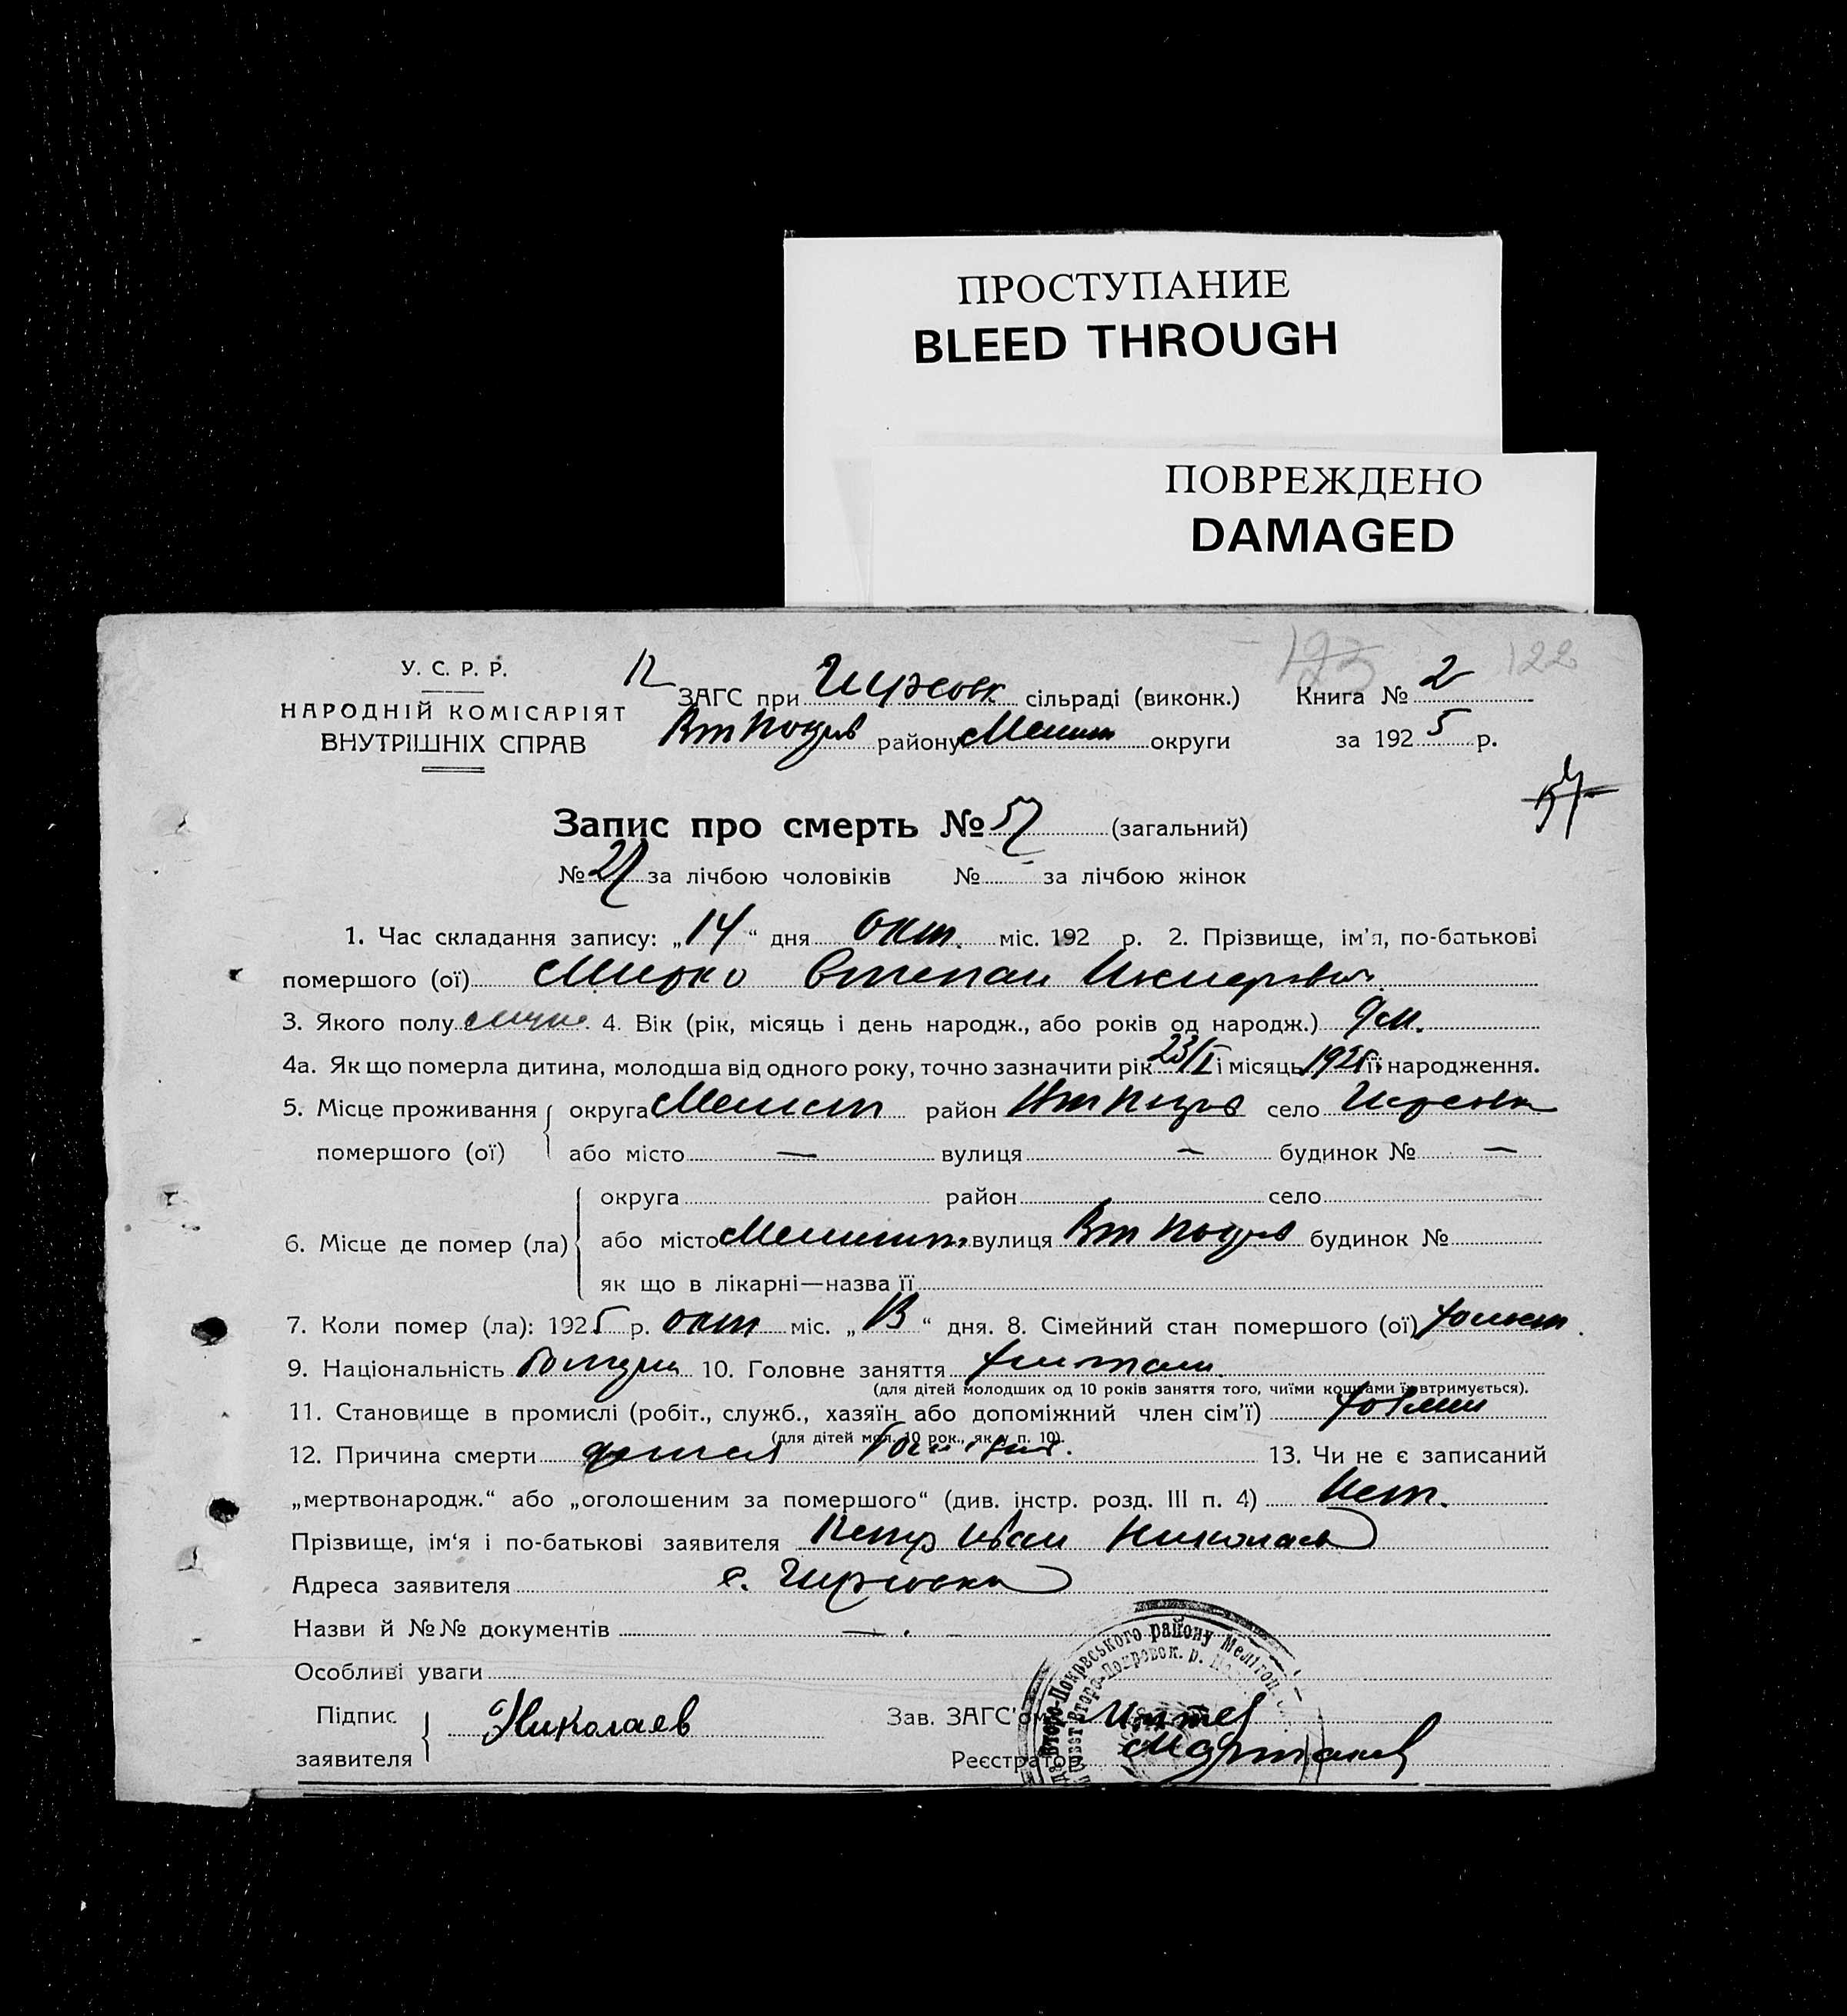 ПРОСТУПАНИЕ
BLEED THROUGH
ПОВРЕЖДЕНО
DAMAGED
123 122
У. С. Р. Р.
НАРОДНІЙ КОМІСАРІЯТ
ВНУТРІШНІХ СПРАВ
12 ЗАГС при Гирсовк. сільраді (виконк.) Книга № 2
Вт Покров району Мелит округи за 1925 р.
57
Запис про смерть № 57 (загальний)
№ 27 за лічбою чоловіків № за лічбою жінок
1. Час складання запису: „14“ дня окт. міс. 192 р. 2. Прізвище, ім’я, по-батькові
помершого (ої) Мирко Степан
3. Якого полу 4. Вік (рік, місяць і день народж., або років од народж.) 9 м.
4а. Як що померла дитина, молодша від одного року, точно зазначити рік 23/I і місяць 1925 її народження.
5. Місце проживання округа Мелит район Вт Покров село Гирсовка
помершого (ої) або місто — вулиця — будинок № —
округа район село
6. Місце де помер (ла) або місто Мелитоп. вулиця Вт Покров будинок №
як що в лікарні—назва її
7. Коли помер (ла): 1925 р. окт міс. „13“ дня. 8. Сімейний стан помершого (ої) холост.
9. Національність Болгарин 10. Головне заняття
(для дітей молодших од 10 років заняття того, чиїми коштами їх втримується).
11. Становище в промислі (робіт., служб., хазяїн або допоміжний член сім’ї)
(для дітей мол. 10 рок., як у п. 10).
12. Причина смерти 13. Чи не є записаний
„мертвонародж.“ або „оголошеним за помершого“ (див. інстр. розд. III п. 4) Нет.
Прізвище, ім‘я і по-батькові заявителя Петр Иван Николаев
Адреса заявителя с. Гирсовка
Назви й №№ документів —.
Особливі уваги
Підпис
заявителя Николаев
Зав. ЗАГС’ом
Реєстратор